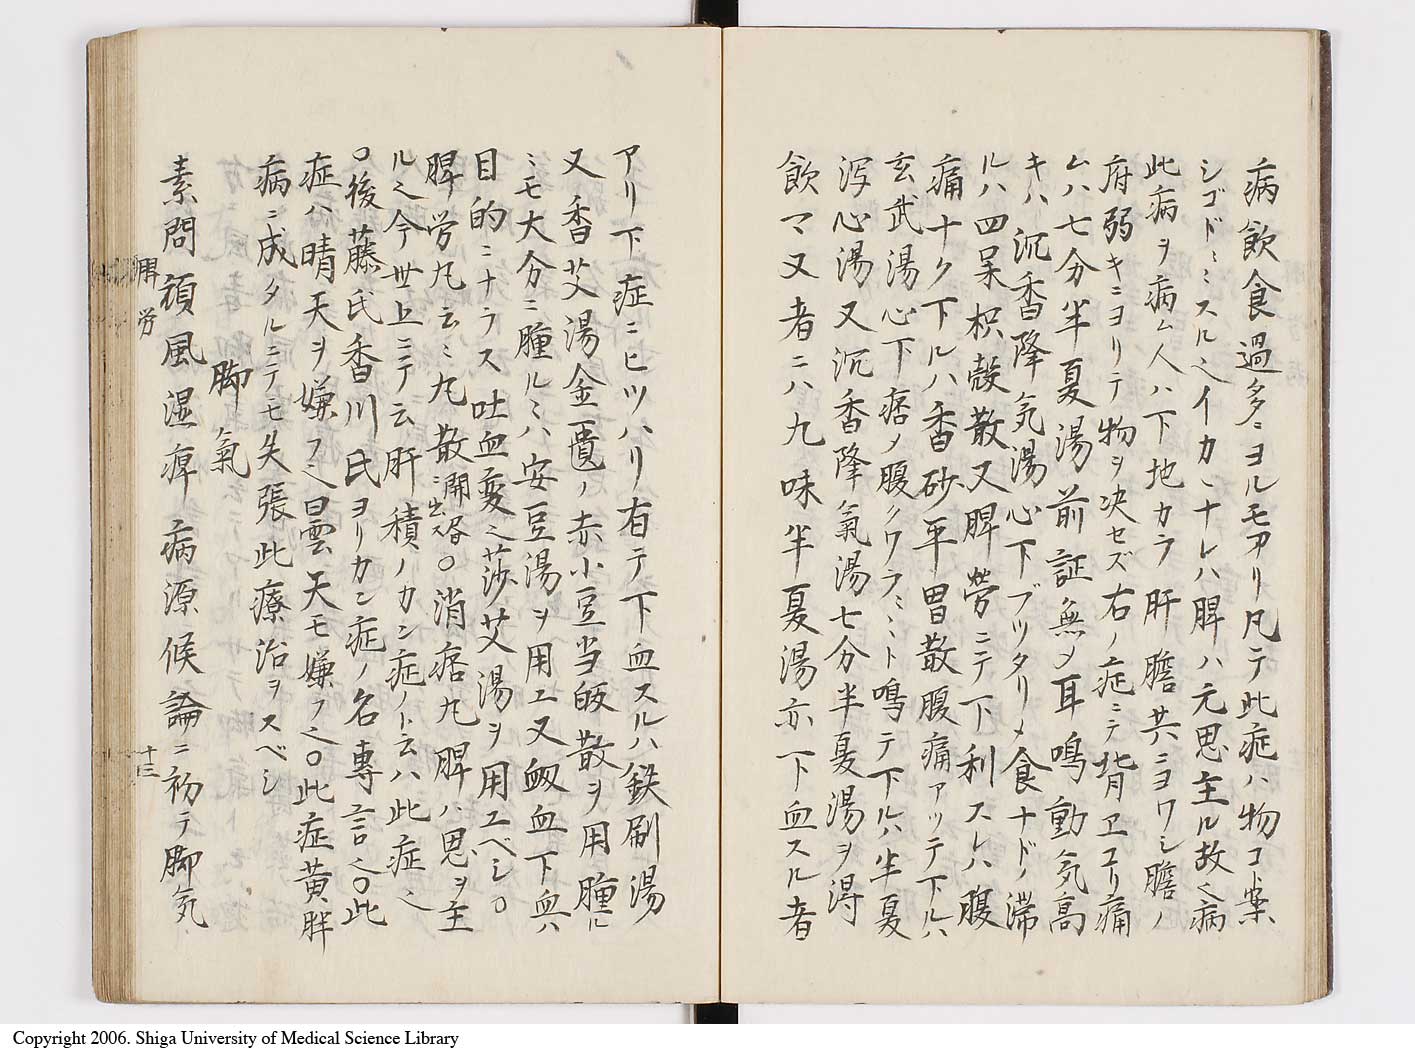 病飲食過多ニヨルモアリ凡テ此症ハ物コト案
シゴトミスル也イカントナレハ脾ハ元思主ル故也病
此病ヲ病ム人ハ下地カラ肝膽共ニヨワシ膽ノ
府弱キニヨリテ物ヲ决セズ右ノ症ニテ背ヱヨリ痛
ムハ七分半夏湯前証無〆耳鳴動気高
キハ沉香降気湯心下ブツタリ〆食ナドノ滞
ルハ四呆枳殻散又脾労ニテ下利スルハ腹
痛ナク下ルハ香砂平胃散腹痛アツテ下ルハ
玄武湯心下痞〆腹クワラミト鳴テ下ルハ半夏
泻心湯又沉香降氣湯七分半夏湯ヲ得
飲マ又者ニハ九味半夏湯亦下血スル者
アリ下症ニヒツハリ有テ下血スルハ鉄刷湯
又香艾湯金匱ノ赤小豆当皈散ヲ用腫ル
ミモ大分ニ腫ルミハ安豆湯ヲ用エ又衂血下血ハ
目的ニナラス吐血変也莎艾湯ヲ用エベシ○
脾労丸云ミ丸散開咨ニ出ス○消痞丸脾ハ思ヲ主
ル也今世上ニテ云肝積ノカン症ノト云ハ此症也
○後藤氏香川氏ヨリカン症ノ名專言也○此
症ハ晴天ヲ嫌フ也曇天モ嫌フ也○此症黄胖
病ニ成タルニテモ失張此療治ヲスベシ
脚氣
素問頑風湿痺病源候論ニ初テ脚気
脾労
十三
Copyright 2006. Shiga University of Medical Science Library